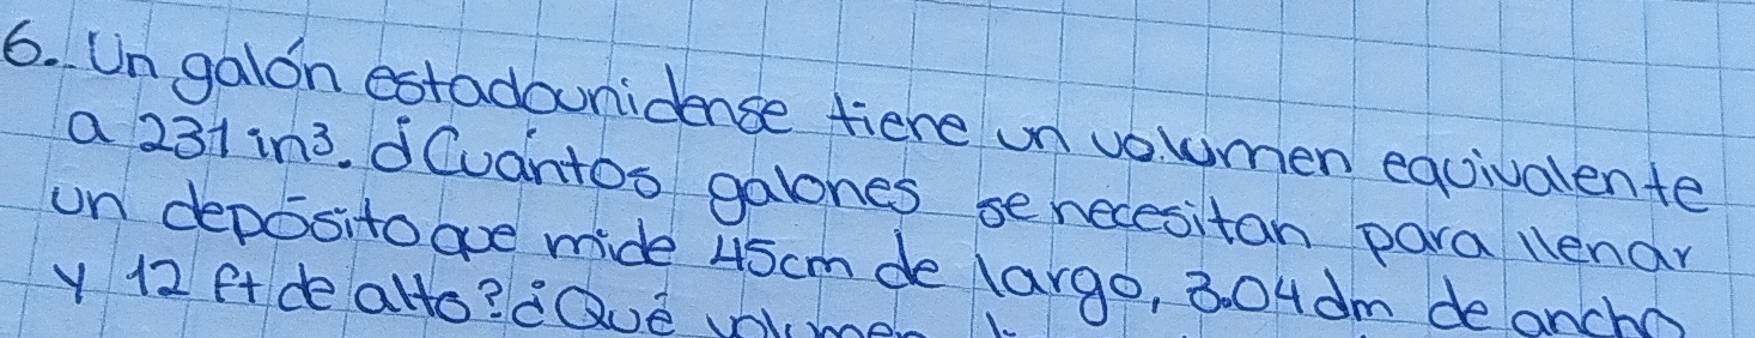 6. Un galón estadounidense tiene un volumen equivalente
a 231 in³. ¿Cuántos galones se necesitan para llenar
un depósito que mide 45cm de largo, 3.04 dm de ancho
y 12 ft de alto? ¿Qué volumen